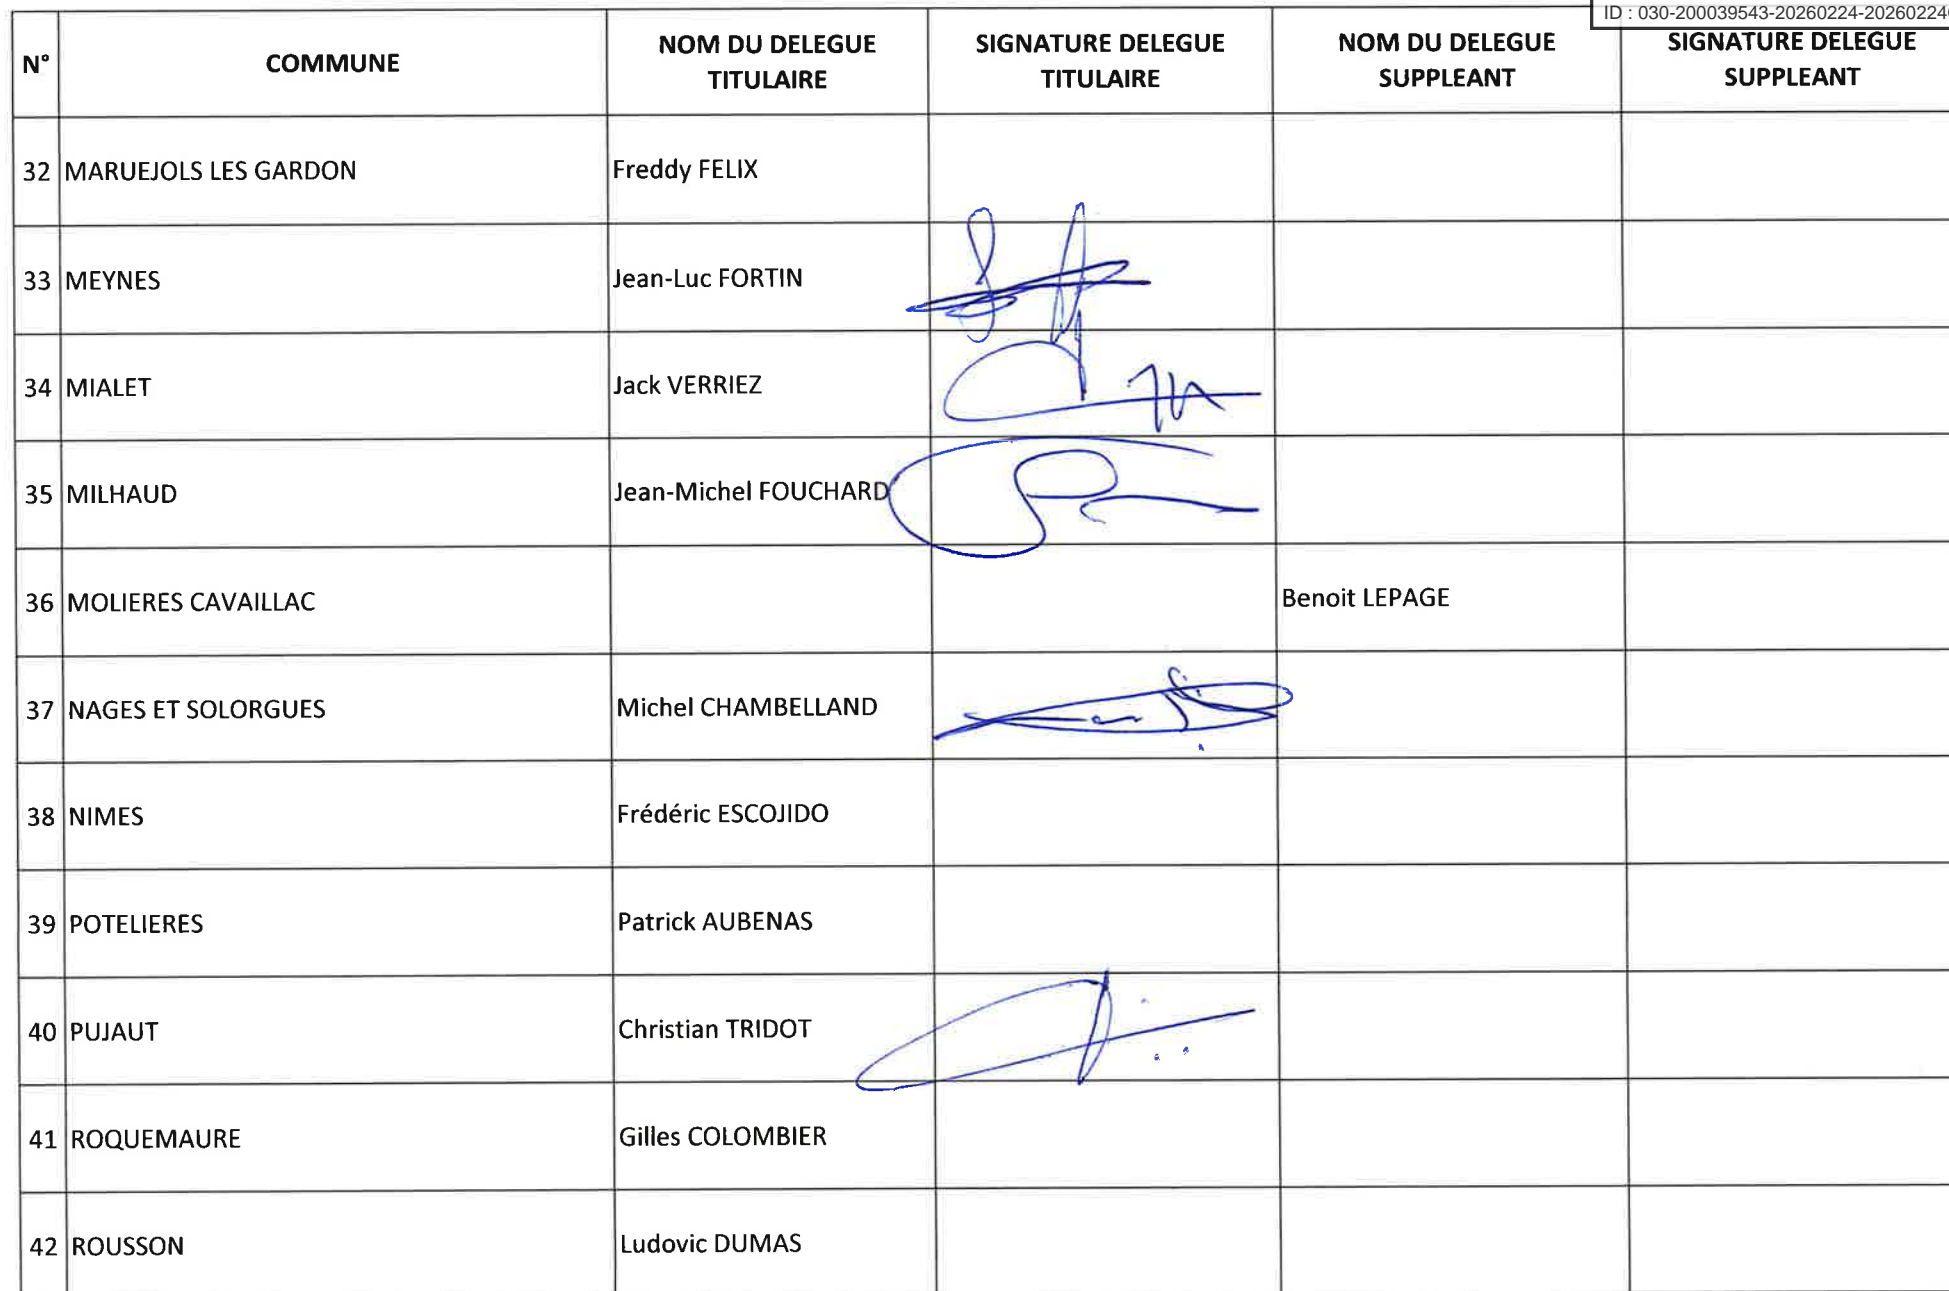 ID : 030-200039543-20260224-20260224
N° COMMUNE NOM DU DELEGUE TITULAIRE SIGNATURE DELEGUE TITULAIRE NOM DU DELEGUE SUPPLEANT SIGNATURE DELEGUE SUPPLEANT
32 MARUEJOLS LES GARDON Freddy FELIX
33 MEYNES Jean-Luc FORTIN
34 MIALET Jack VERRIEZ
35 MILHAUD Jean-Michel FOUCHARD
36 MOLIERES CAVAILLAC Benoit LEPAGE
37 NAGES ET SOLORGUES Michel CHAMBELLAND
38 NIMES Frédéric ESCOJIDO
39 POTELIERES Patrick AUBENAS
40 PUJAUT Christian TRIDOT
41 ROQUEMAURE Gilles COLOMBIER
42 ROUSSON Ludovic DUMAS